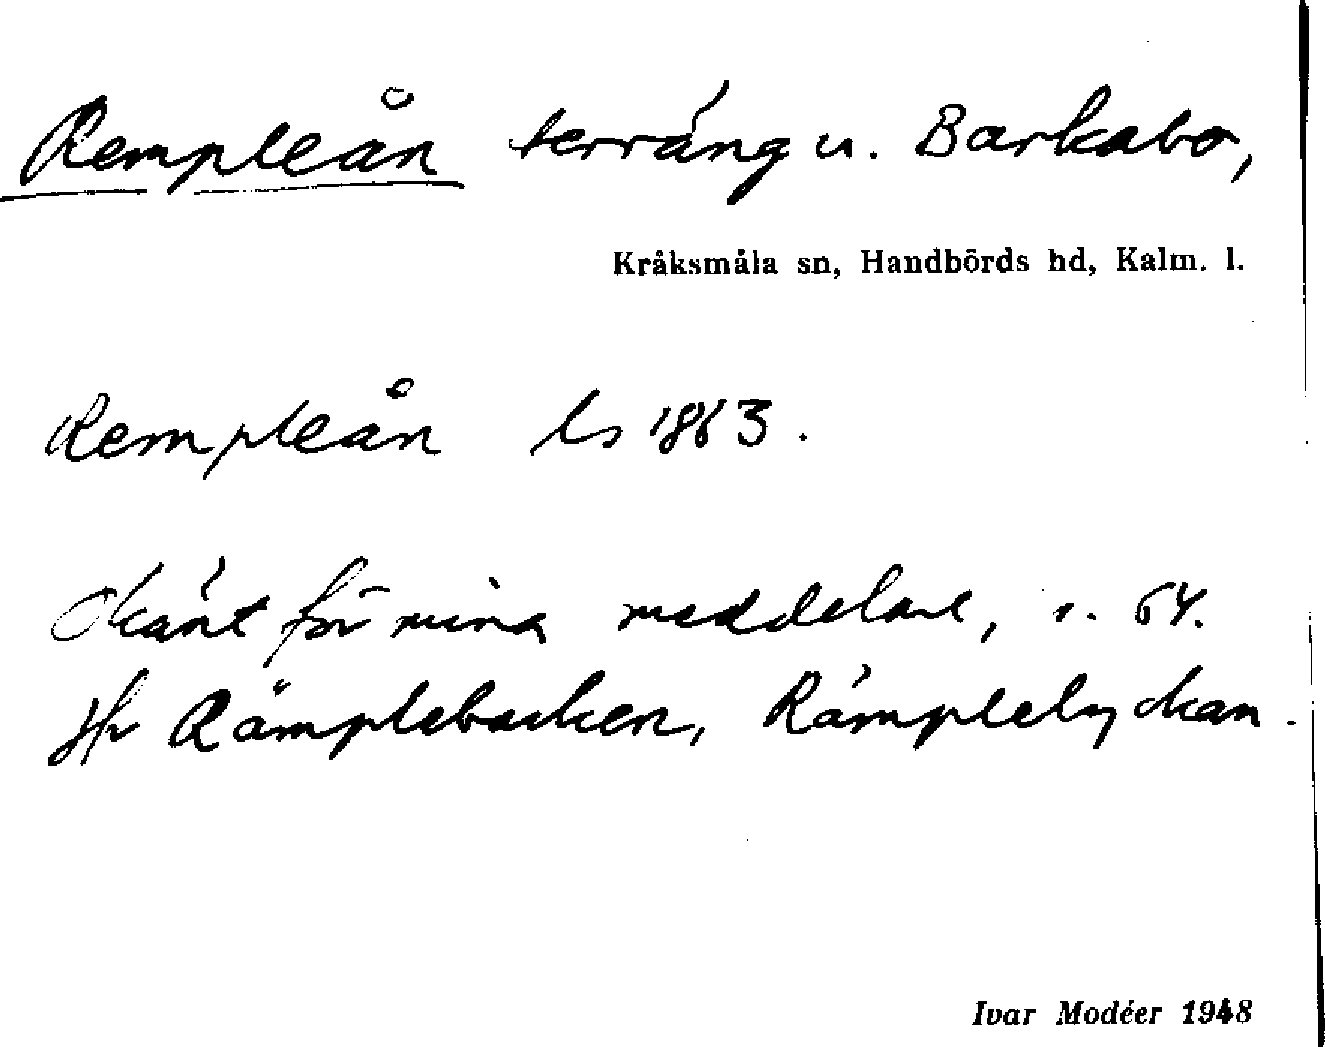 Rempleån terräng u. Barkabo,
Kråksmåla sn, Handbörds hd, Kalm. l.
Rempleån ls 1863.
Okänt för mina meddelare, s. 64.
Jfr Rämplebacken, Rämplelyckan.
Ivar Modéer 1948